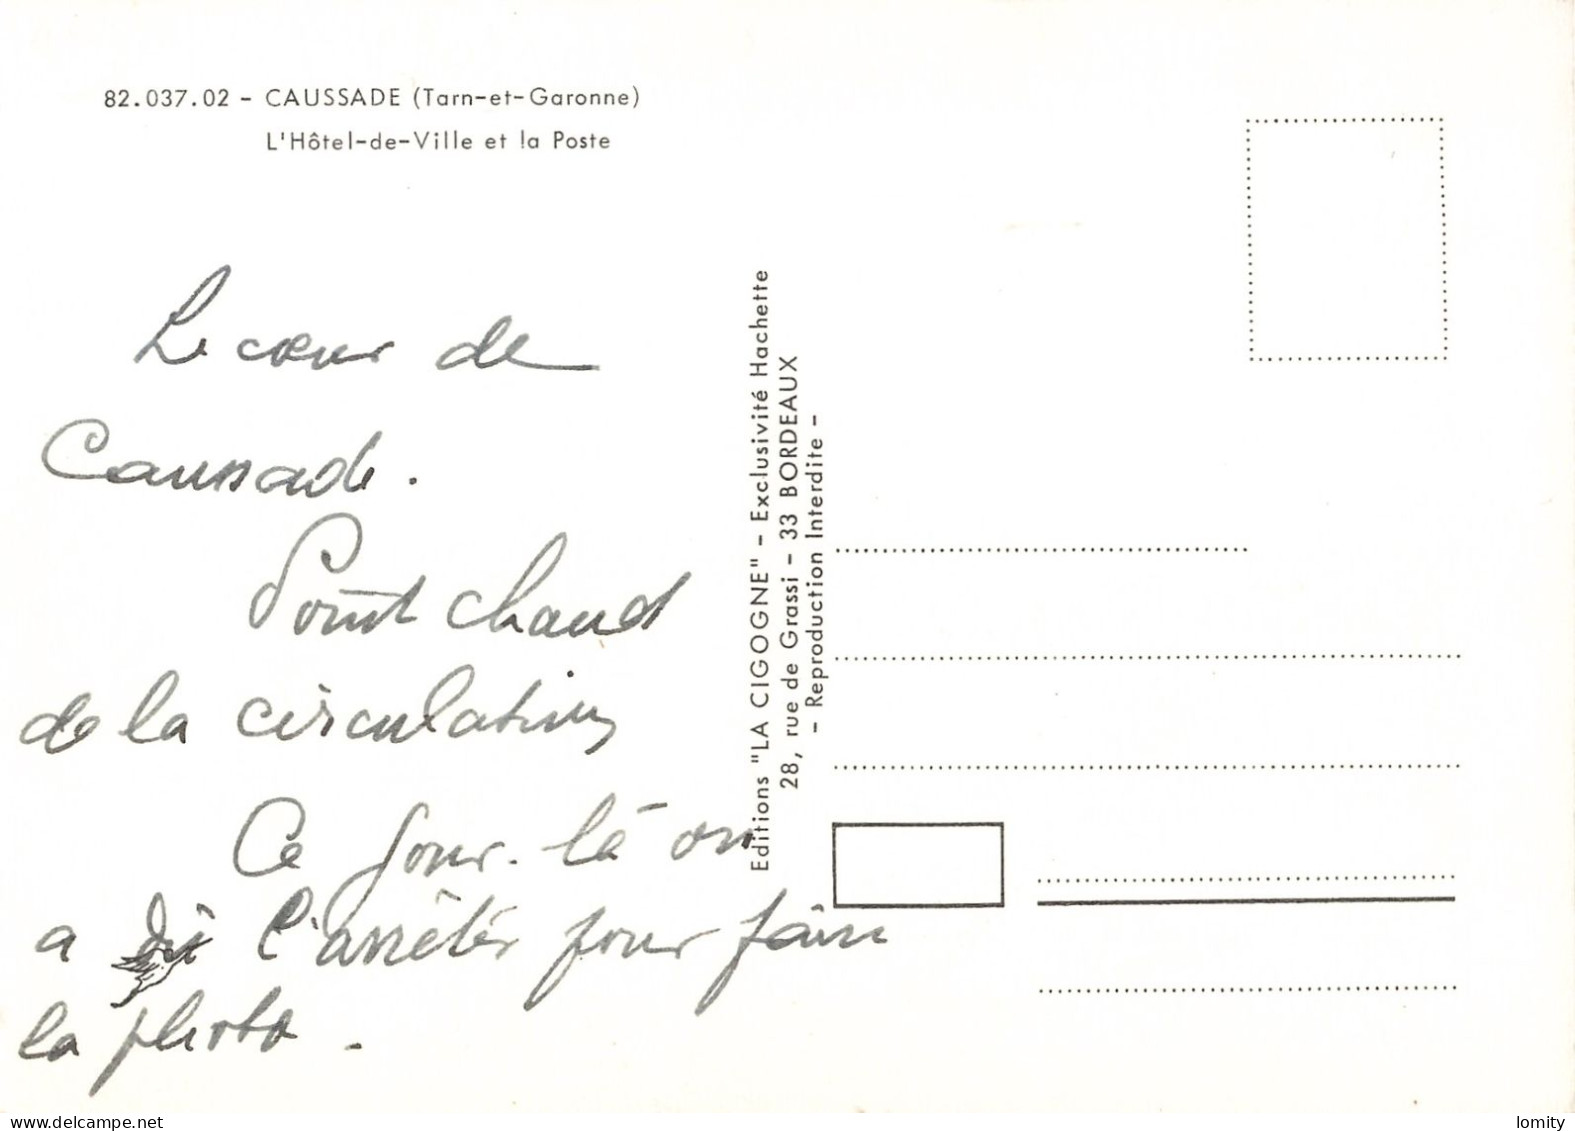 82.037.02 - CAUSSADE (Tarn-et-Garonne)
L'Hôtel-de-Ville et la Poste
Le cœur de
Caussade.
Point chaud
de la circulation
Ce jour-là on
a dû l'arrêter pour faire
la photo.
Editions "LA CIGOGNE" - Exclusivité Hachette
28, rue de Grassi - 33 BORDEAUX
- Reproduction Interdite -
lomity